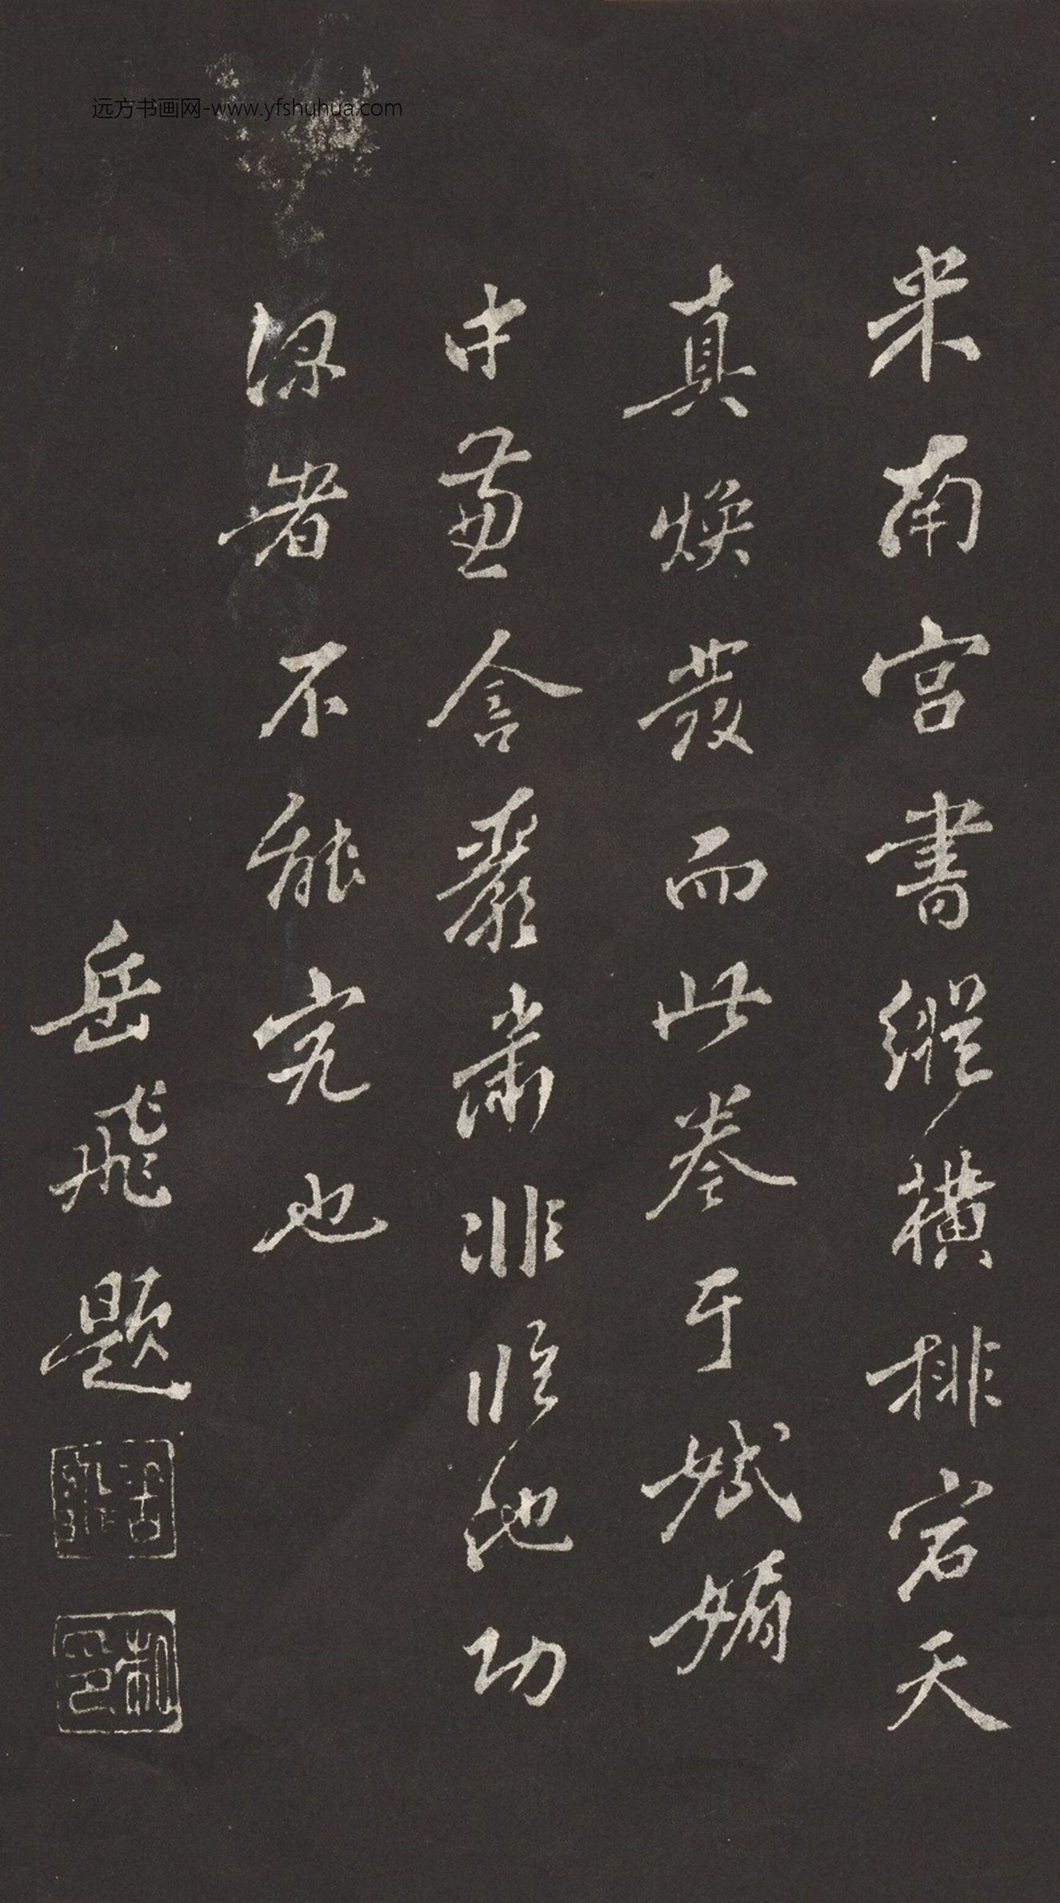 远方书画网-www.yfshuhua.com
米南宫書縱横排宕天
真焕發而此卷于娬媚
中兼含嚴肅非臨池功
深者不能究也
岳飛題